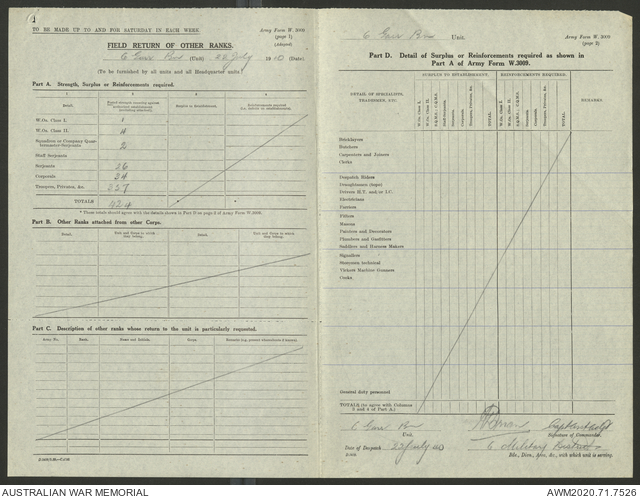 TO BE MADE UP TO AND FOR SATURDAY IN EACH WEEK
Army Form W. 3009
(page 1)
(Adapted)
FIELD RETURN OF OTHER RANKS.
6 Garr Bn (Unit) 22 July 1940 (Date)
(To be furnished by all units and all Headquarter units)
Part A. Strength, Surplus or Reinforcements required.
1 2 3 4
Detail.
Surplus to Establishment.
W.Os. Class I. 1
W.Os. Class II. 4
Squadron or Company Quar-
termaster-Serjeants 2
Staff Serjeants
Serjeants 26
Corporals 34
Troopers, Privates, &c. 357
TOTALS 424
* These totals should agree with the details shown in Part D on page 2 of army Form W.3009.
Part B. Other Ranks attached from other Corps.
Detail. Unit and Corps to which they belong. Detail. Unit and Corps to which they belong.
Part C. Description of other ranks whose return to the unit is particularly requested.
Army No. Rank. Name and Initials.
6 Garr Bn Unit.
Army Form W. 3009
(page 2)
Part D. Detail of Surplus or Reinforcements required as shown in
Part A of Army Form W.3009.
DETAIL OF SPECIALISTS,
TRADESMEN, ETC.
SURPLUS TO ESTABLISHMENT.
REINFORCEMENTS REQUIRED.
REMARKS
W.Os. Class I.
W.Os. Class II.
Serjeants.
Corporals.
TOTAL.
W.Os. Class I.
W.Os. Class II.
Serjeants.
Corporals.
TOTAL.
Bricklayers
Butchers
Carpenters and Joiners
Clerks
Despatch Riders
Draughtsmen (topo)
Drivers H.T. and/or I.C.
Electricians
Farriers
Fitters
Masons
Painters and Decorators
Plumbers and Gasfitters
Saddlers and Harness Makers
Signallers
Storemen technical
Vickers Machine Gunners
Cooks.
General duty personnel
TOTALS (to agree with Columns
3 and 4 of Part A.)
6 Garr Bn
Unit.
Signature of Commander.
Date of Despatch 22 July 40
6 Military District
Bde., Divn., Area, &c., with which unit is serving.
AUSTRALIAN WAR MEMORIAL
AWM2020.71.7526